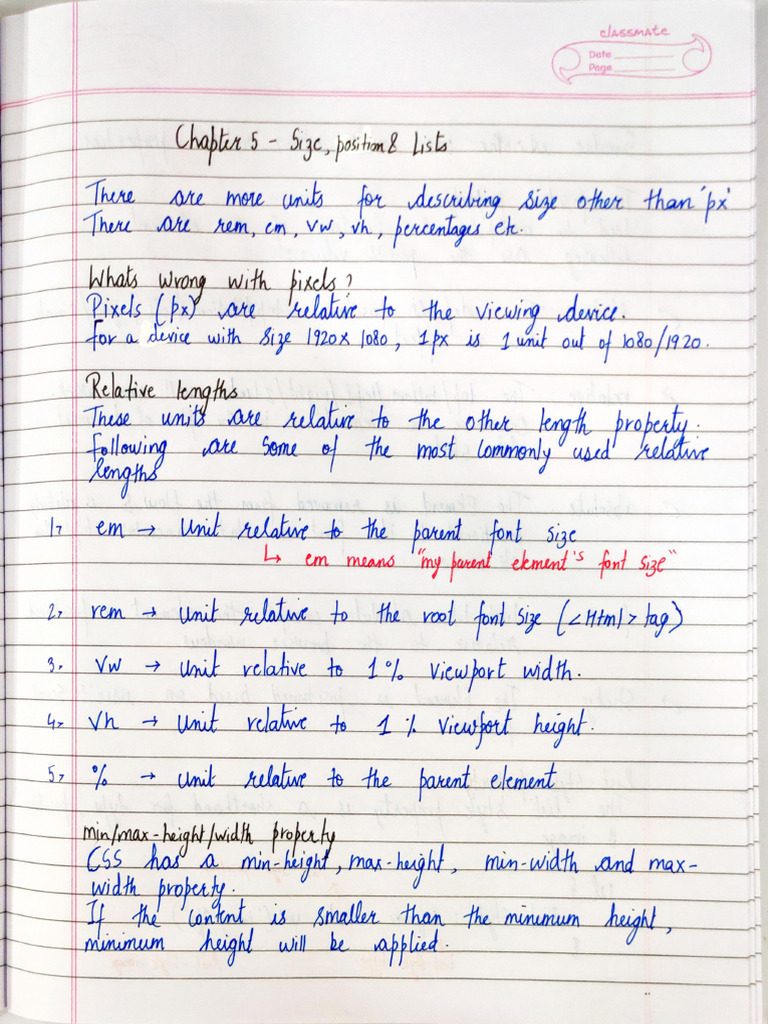 classmate
Date
Page
Chapter 5 - Size, position & Lists
There are more units for describing size other than 'px'
There are rem, em, vw, vh, percentages etc.
Whats wrong with pixels?
Pixels (px) are relative to the viewing device.
For a device with size 1920 x 1080, 1px is 1 unit out of 1080/1920.
Relative lengths
These units are relative to the other length property.
Following are some of the most commonly used relative
lengths
1> em → Unit relative to the parent font size
↳ em means "my parent element's font size"
2> rem → unit relative to the root font size (<Html> tag)
3> vw → unit relative to 1% viewport width.
4> vh → unit relative to 1% viewport height.
5> % → unit relative to the parent element
min/max-height/width property
CSS has a min-height, max-height, min-width and max-
width property.
If the content is smaller than the minimum height,
minimum height will be applied.